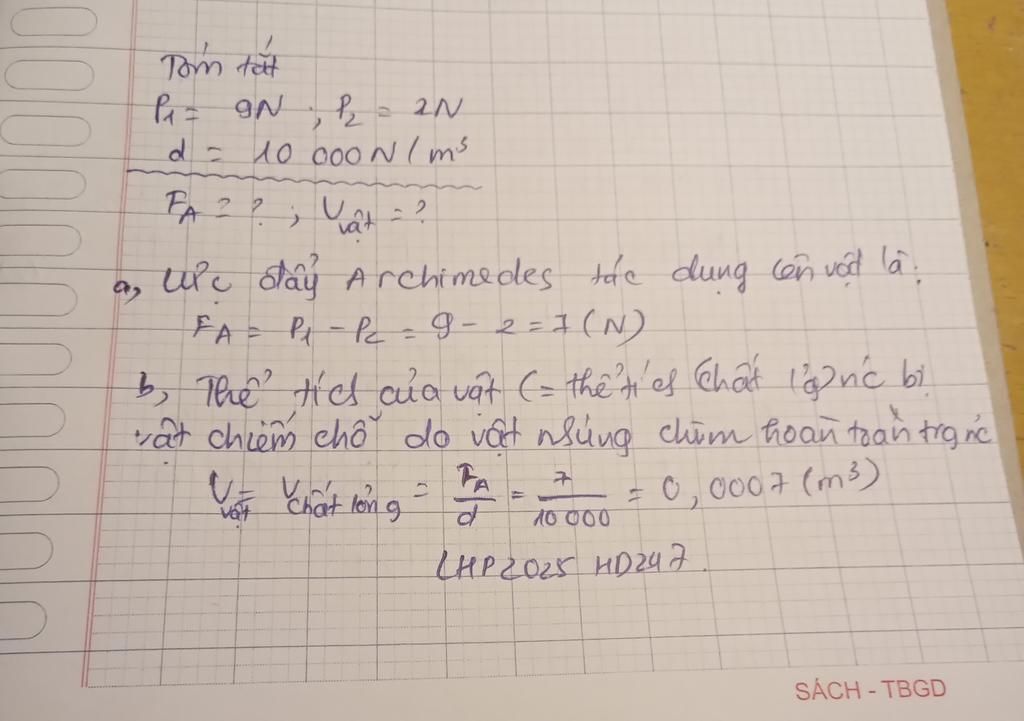 Tóm tắt
P₁ = 9N ; P₂ = 2N
d = 10 000 N/m³
F_A = ? ; V vật = ?
a, Lực đẩy Archimedes tác dụng lên vật là:
F_A = P₁ - P₂ = 9 - 2 = 7 (N)
b, Thể tích của vật (= thể tích chất lg) nc bị
vật chiếm chỗ do vật nhúng chìm hoàn toàn trg nc
V vật = V chất lỏng = F_A/d = 7/10 000 = 0,0007 (m³)
LHP2025 HD247.
SÁCH - TBGD